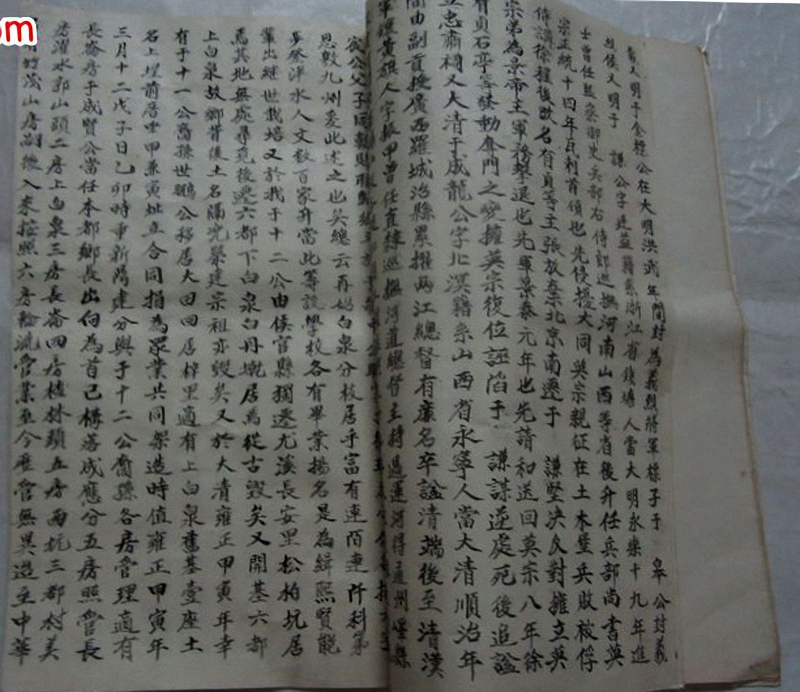 義又明于金標公在大明洪武年間封為義烈將軍標子于 皋公封義
故侯又明于 謙公字廷益籍系浙江省錢塘人當大明永樂十九年進
士曾任監察御史兵部右侍郎巡撫河南山西等省後升任兵部尚書英
宗正統十四年瓦剌首領也先侵擾大同英宗親征在土木堡兵敗被俘
侍講徐珵後改名有貞等主張放棄北京南遷于 謙堅決反對擁立英
宗弟為景帝主軍務擊退也先軍景泰元年也先請和送回英宗八年徐
有貞石亨等發動奪門之變擁英宗復位誣陷于 謙謀逆處死後追諡
立忠肅祠又大清于成龍公字北溟籍系山西省永寧人當大清順治年
間由副貢授廣西羅城治縣累擢兩江總督有廉名卒諡清端後至清漢
軍鑲黃旗人字振甲曾任直隸巡撫河道總督主持過運河得通州
宸公父子同朝
恩敭九州爰此述之也矣總云再始白泉分枝居乎富有連陌連阡科第
步登泮水人文數百家升當此籌設學校各有畢業揚名是為緝熙賢能
輩出經世栽培又於我于十二公由侯官縣獨遷尤溪長安里松柏坑居
焉其地無處尋覓後遷六都下白泉白丹墘居焉從古毀矣又開基六都
上白泉故鄉昔後土名隔兜擧建宗祖亦毀矣又於大清雍正甲寅年幸
有于十一公裔孫世鵬公移居大田四居梓里適有上白泉舊基壹座土
名上埕前厝坐甲兼寅址立合同指為眾業共同架造時值雍正甲寅年
三月十二戊子日己卯時重新鳩建分與于十二公裔孫各房管理適有
長崙房于成賢公當任本都鄉長出向為首己構落成應分五房照管長
房濯水郭山頭二房上白泉三房長崙四房桂林頭五房西坑三郡村美
竹茂山房嗣後入來按照六房輪流管業至今歷管無異造至中華